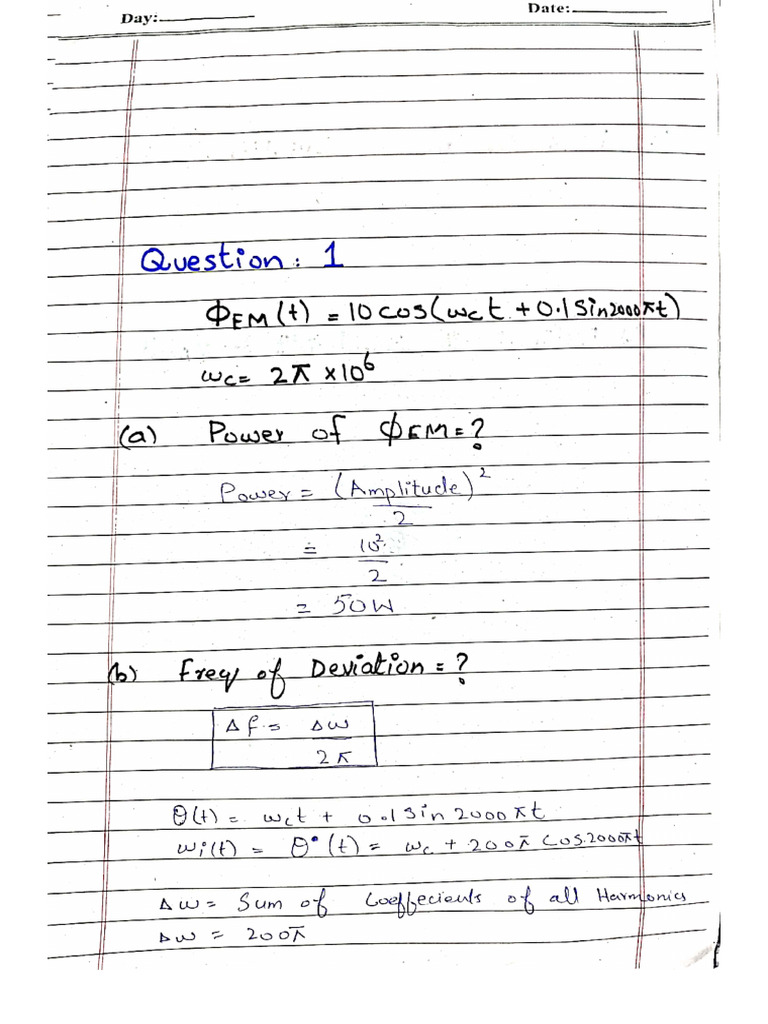 Day:
Date:
Question: 1
ΦEM(t) = 10 cos(ωct + 0.1 Sin2000πt)
ωc = 2π ×10⁶
(a) Power of ΦEM = ?
Power = (Amplitude)²
2
= 10²
2
= 50W
(b) Freq of Deviation = ?
Δf = Δω
2π
θ(t) = ωct + 0.1 Sin 2000πt
ωi(t) = θ•(t) = ωc + 200π Cos2000πt
Δω = Sum of Coeffecients of all Harmonics
Δω = 200π